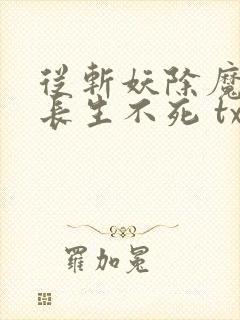 從斬妖除魔
長生不死 tx
羅加冕